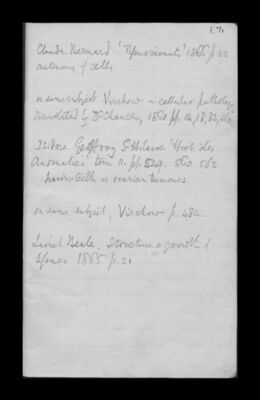 Claude Bernard 'Tissus vivants' 1866 p. 22
autonomy of cells
on same subject Virchow in cellular pathology
translated by Dr Chance, 1860 pp. 14, 18, 83,
Isidore Geoffroy St Hilaire 'Hist. des
Anomalies' tom. II. pp. 549. 560 562
hair & teeth in ovarian tumours
on same subject, Virchow p. 484.
Lionel Beale, Structure & growth of
tissues 1865 p. 21